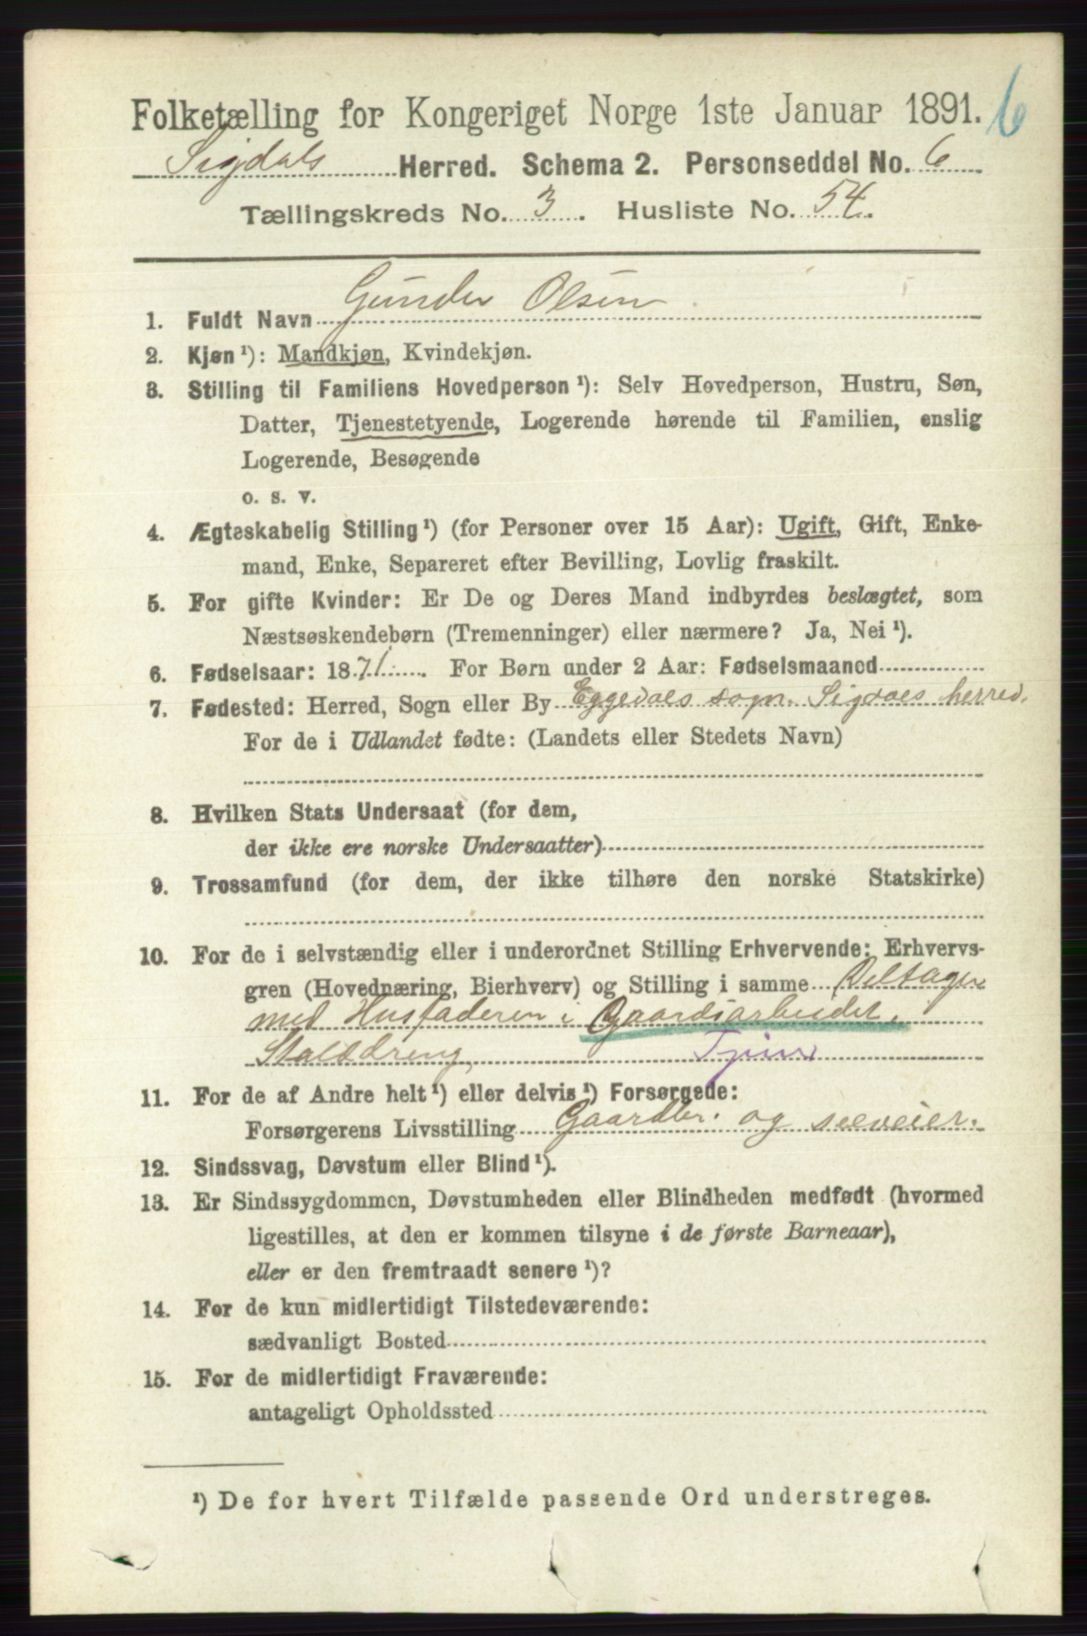 Folketælling for Kongeriget Norge 1ste Januar 1891. 6
Sigdals Herred. Schema 2. Personseddel No. 6
Tællingskreds No. 3. Husliste No. 54.
1. Fuldt Navn Gunder Olsen
2. Kjøn ¹): Mandkjøn, Kvindekjøn.
3. Stilling til Familiens Hovedperson ¹): Selv Hovedperson, Hustru, Søn,
Datter, Tjenestetyende, Logerende hørende til Familien, enslig
Logerende, Besøgende
o. s. v.
4. Ægteskabelig Stilling ¹) (for Personer over 15 Aar): Ugift, Gift, Enke-
mand, Enke, Separeret efter Bevilling, Lovlig fraskilt.
5. For gifte Kvinder: Er De og Deres Mand indbyrdes beslægtet, som
Næstsøskendebørn (Tremenninger) eller nærmere? Ja, Nei ¹).
6. Fødselsaar: 1871. For Børn under 2 Aar: Fødselsmaaned
7. Fødested: Herred, Sogn eller By Eggedals sogn. Sigdals herred.
For de i Udlandet fødte: (Landets eller Stedets Navn)
8. Hvilken Stats Undersaat (for dem,
der ikke ere norske Undersaatter)
9. Trossamfund (for dem, der ikke tilhøre den norske Statskirke)
10. For de i selvstændig eller i underordnet Stilling Erhvervende: Erhvervs-
gren (Hovednæring, Bierhverv) og Stilling i samme Deltager
med Husfaderen i Gaardsarbeidet.
Stalddreng
11. For de af Andre helt ¹) eller delvis ¹) Forsørgede:
Forsørgerens Livsstilling Gaardbr. og selveier.
12. Sindssvag, Døvstum eller Blind ¹).
13. Er Sindssygdommen, Døvstumheden eller Blindheden medfødt (hvormed
ligestilles, at den er kommen tilsyne i de første Barneaar),
eller er den fremtraadt senere ¹)?
14. For de kun midlertidigt Tilstedeværende:
sædvanligt Bosted
15. For de midlertidigt Fraværende:
antageligt Opholdssted
¹) De for hvert Tilfælde passende Ord understreges.